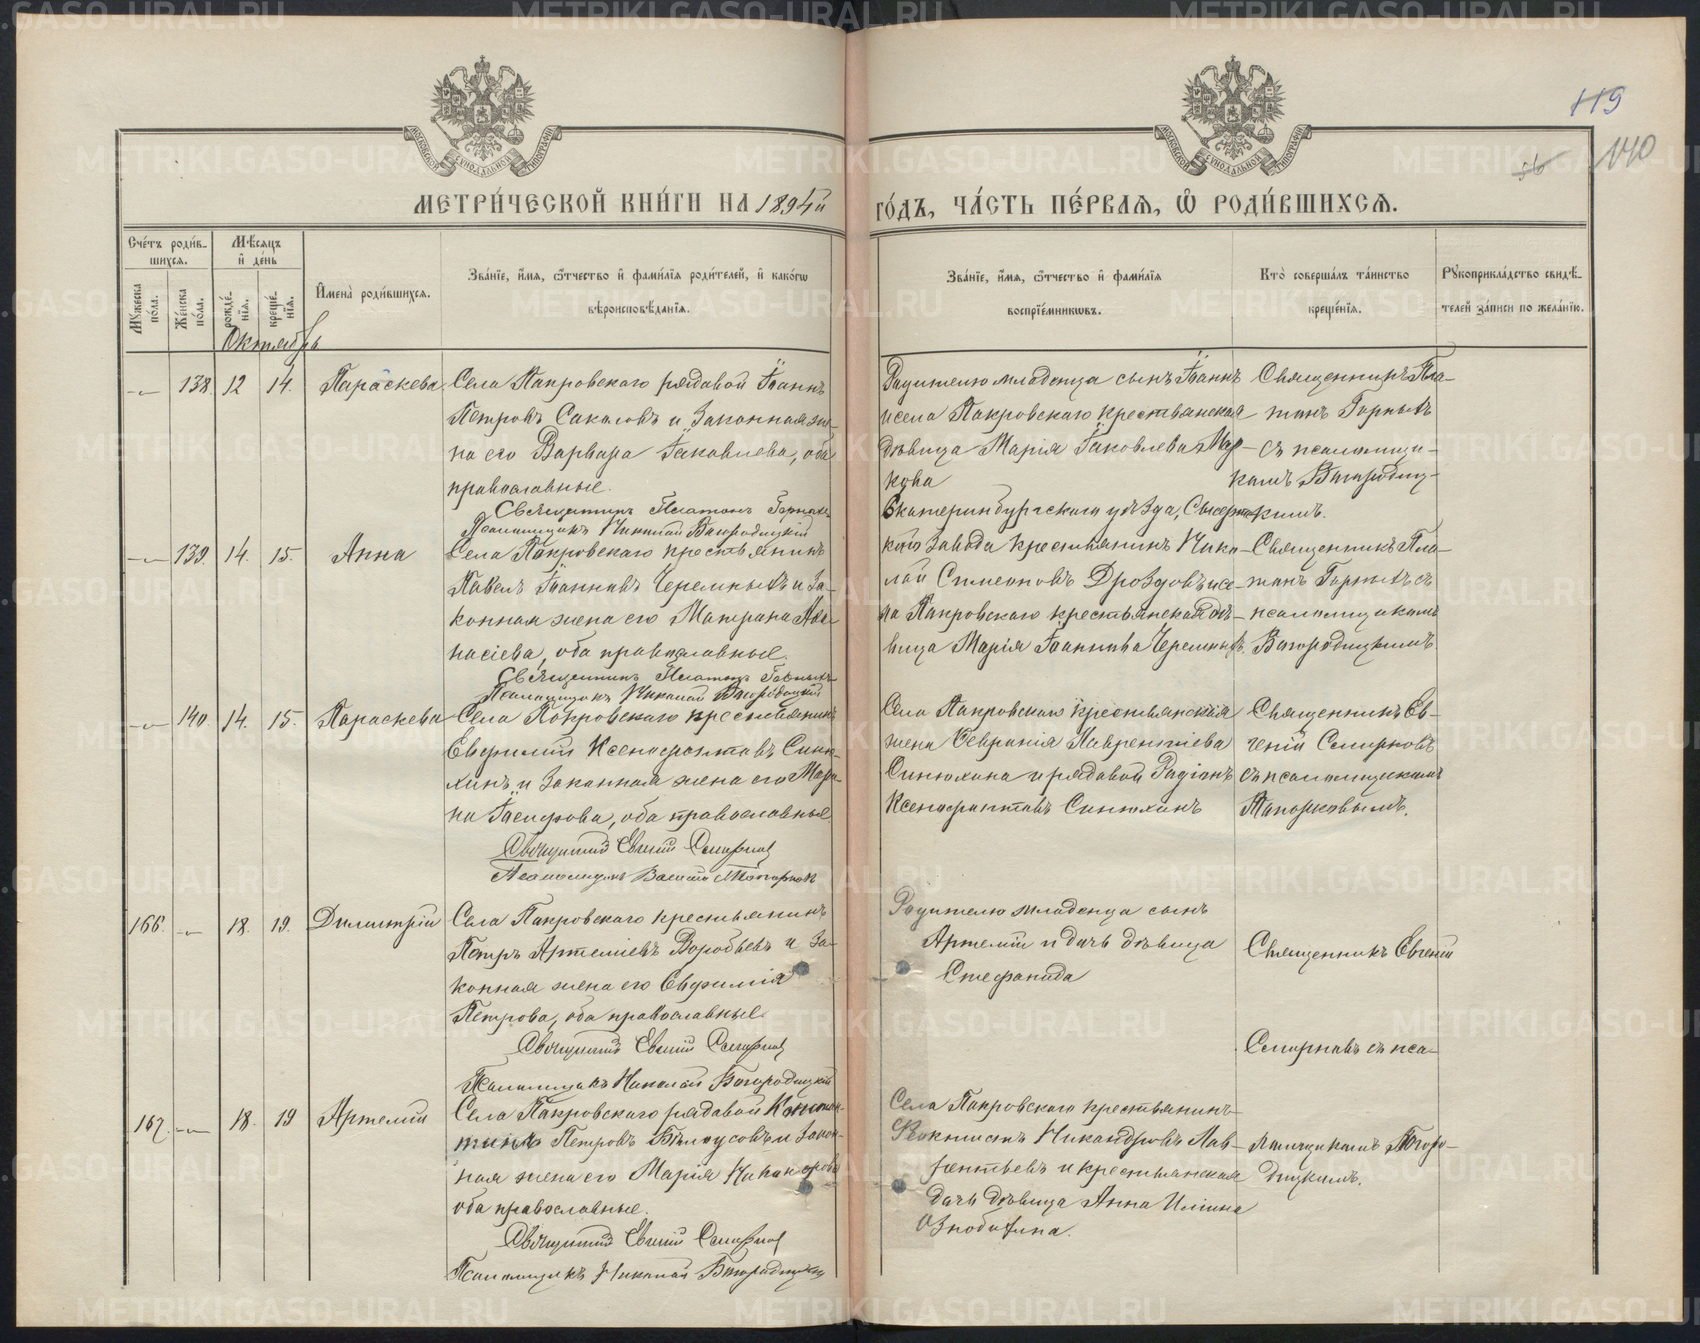 119
140
56
МЕТРИ́ЧЕСКОЙ КНИ́ГИ НА 1894й ГО́ДЪ, ЧА́СТЬ ПЕ́РВАЯ, Ѡ҆ РОДИ́ВШИХСЯ.
Сче́тъ роди́в-
шихся.
Мѣ́сяцъ
и҆ де́нь
Мꙋ́жеска по́ла.
Же́нска по́ла.
рожде́-
нїя.
креще́-
нїя.
И҆мена̀ роди́вшихся.
Зва́нїе, и҆́мя, ѻ҆́тчество и҆ фами́лїя роди́телей, и҆ како́гѡ
вѣроисповѣ́данїя.
Зва́нїе, и҆́мя, ѻ҆́тчество и҆ фами́лїя
воспрїе́мникѡвъ.
Кто̀ соверша́лъ та́инство
креще́нїя.
Рꙋкоприкла́дство свидѣ́-
телей за́писи по жела́нїю.
Октябрь
138. 12 14. Параскева
Села Покровскаго рядовой Іоаннъ
Петровъ Соколовъ и законная же-
на его Варвара Іаковлева, оба
православные.
Священникъ Платонъ Горныхъ
Псаломщикъ Николай Богородицкій
Родителю младенца сынъ Іоаннъ
и села Покровскаго крестьянская
дѣвица Марія Іаковлева
Священникъ Пла-
тонъ Горныхъ
съ псаломщи-
комъ Богородиц-
кимъ.
139. 14. 15. Анна
Села Покровскаго крестьянинъ
Павелъ Іоанновъ Черемныхъ и за-
конная жена его Матрона Аѳа-
насіева, оба православные.
Священникъ Платонъ Горныхъ
Псаломщикъ Николай Богородицкій
Екатеринбургскаго уѣзда, Сысерт-
скаго завода крестьянинъ Нико-
лай Симеоновъ Дроздовъ и се-
ла Покровскаго крестьянская дѣ-
вица Марія Іоаннова Черемныхъ.
Священникъ Пла-
тонъ Горныхъ съ
псаломщикомъ
Богородицкимъ
140. 14. 15. Параскева
Села Покровскаго крестьянинъ
Евфимій Ксенофонтовъ Синю-
хинъ и законная жена его Мари-
на Іосифова, оба православные.
Священникъ Евгеній Смирновъ
Псаломщикъ Василій Топорковъ
Села Покровскаго крестьянская
жена Февронія Лаврентіева
Синюхина и рядовой Родіонъ
Ксенофонтовъ Синюхинъ
Священникъ Ев-
геній Смирновъ
съ псаломщикомъ
Топорковымъ.
166. 18. 19. Димитрій
Села Покровскаго крестьянинъ
Петръ Артеміевъ Воробьевъ и за-
конная жена его Евфимія
Петрова, оба православные.
Священникъ Евгеній Смирновъ
Псаломщикъ Николай Богородицкій
Родителю младенца сынъ
Артемій и дочь дѣвица
Стефанида
Священникъ Евгеній
Смирновъ съ пса-
167. 18. 19 Артемій
Села Покровскаго рядовой Констан-
тинъ Петровъ Бѣлоусовъ и закон-
ная жена его Марія Никанорова
оба православные.
Священникъ Евгеній Смирновъ
Псаломщикъ Николай Богородицкій
Села Покровскаго крестьянинъ
Никандровъ Лав-
рентьевъ и крестьянская
дочь дѣвица Анна Ильина
Ознобихина.
ломщикомъ Богоро-
дицкимъ.
METRIKI.GASO-URAL.RU